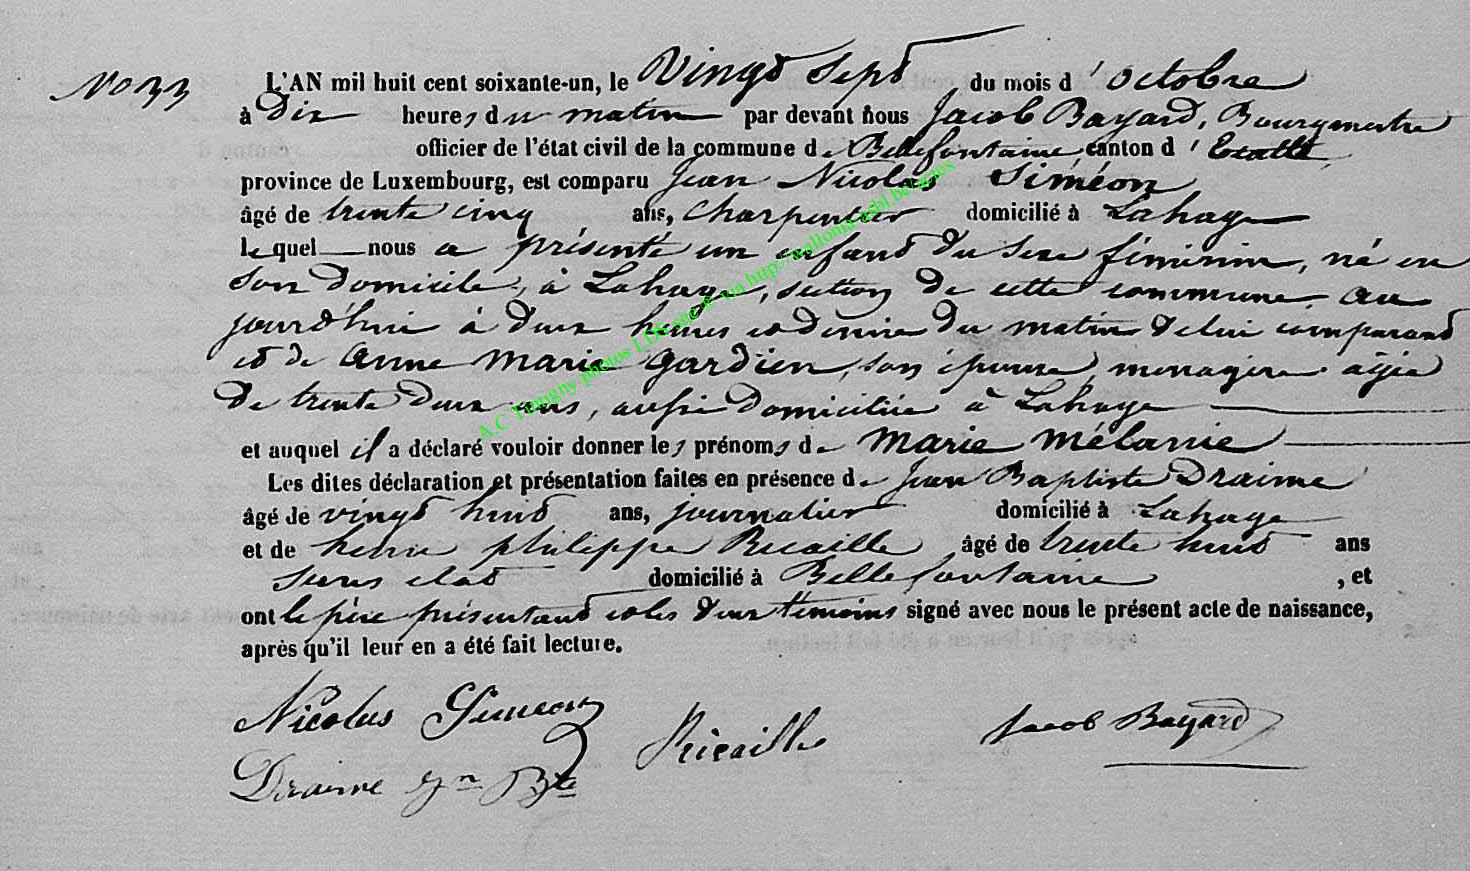 No 33
L'AN mil huit cent soixante-un, le Vingt Sept du mois d'Octobre
à Dix heures du matin par devant nous Jacob Bayard, Bourgmestre
officier de l'état civil de la commune de Bellefontaine, canton d'Etalle,
province de Luxembourg, est comparu Jean Nicolas Siméon
âgé de trente cinq ans, Charpentier domicilié à Lahage
lequel nous a présenté un enfant du sexe féminin, né en
son domicile, à Lahage, section de cette commune au
jourd'hui à deux heures et demie du matin de lui comparant
et de Anne Marie Gardien, son épouse menagère âgée
de trente deux ans, aussi domiciliée à Lahage
et auquel il a déclaré vouloir donner les prénoms de Marie Mélanie
Les dites déclaration et présentation faites en présence de Jean Baptiste Draime
âgé de vingt huit ans, journalier domicilié à Lahage
et de henri philippe Ricaille âgé de trente huit ans
sans etat domicilié à Bellefontaine, et
ont le père présentant et les deux témoins signé avec nous le présent acte de naissance,
après qu'il leur en a été fait lecture.
Nicolas Simeon
Ricaille
Jacob Bayard
Draime Jn Bte
A.C Tintigny photos LDS via http://wallonia-asbl.be/actes